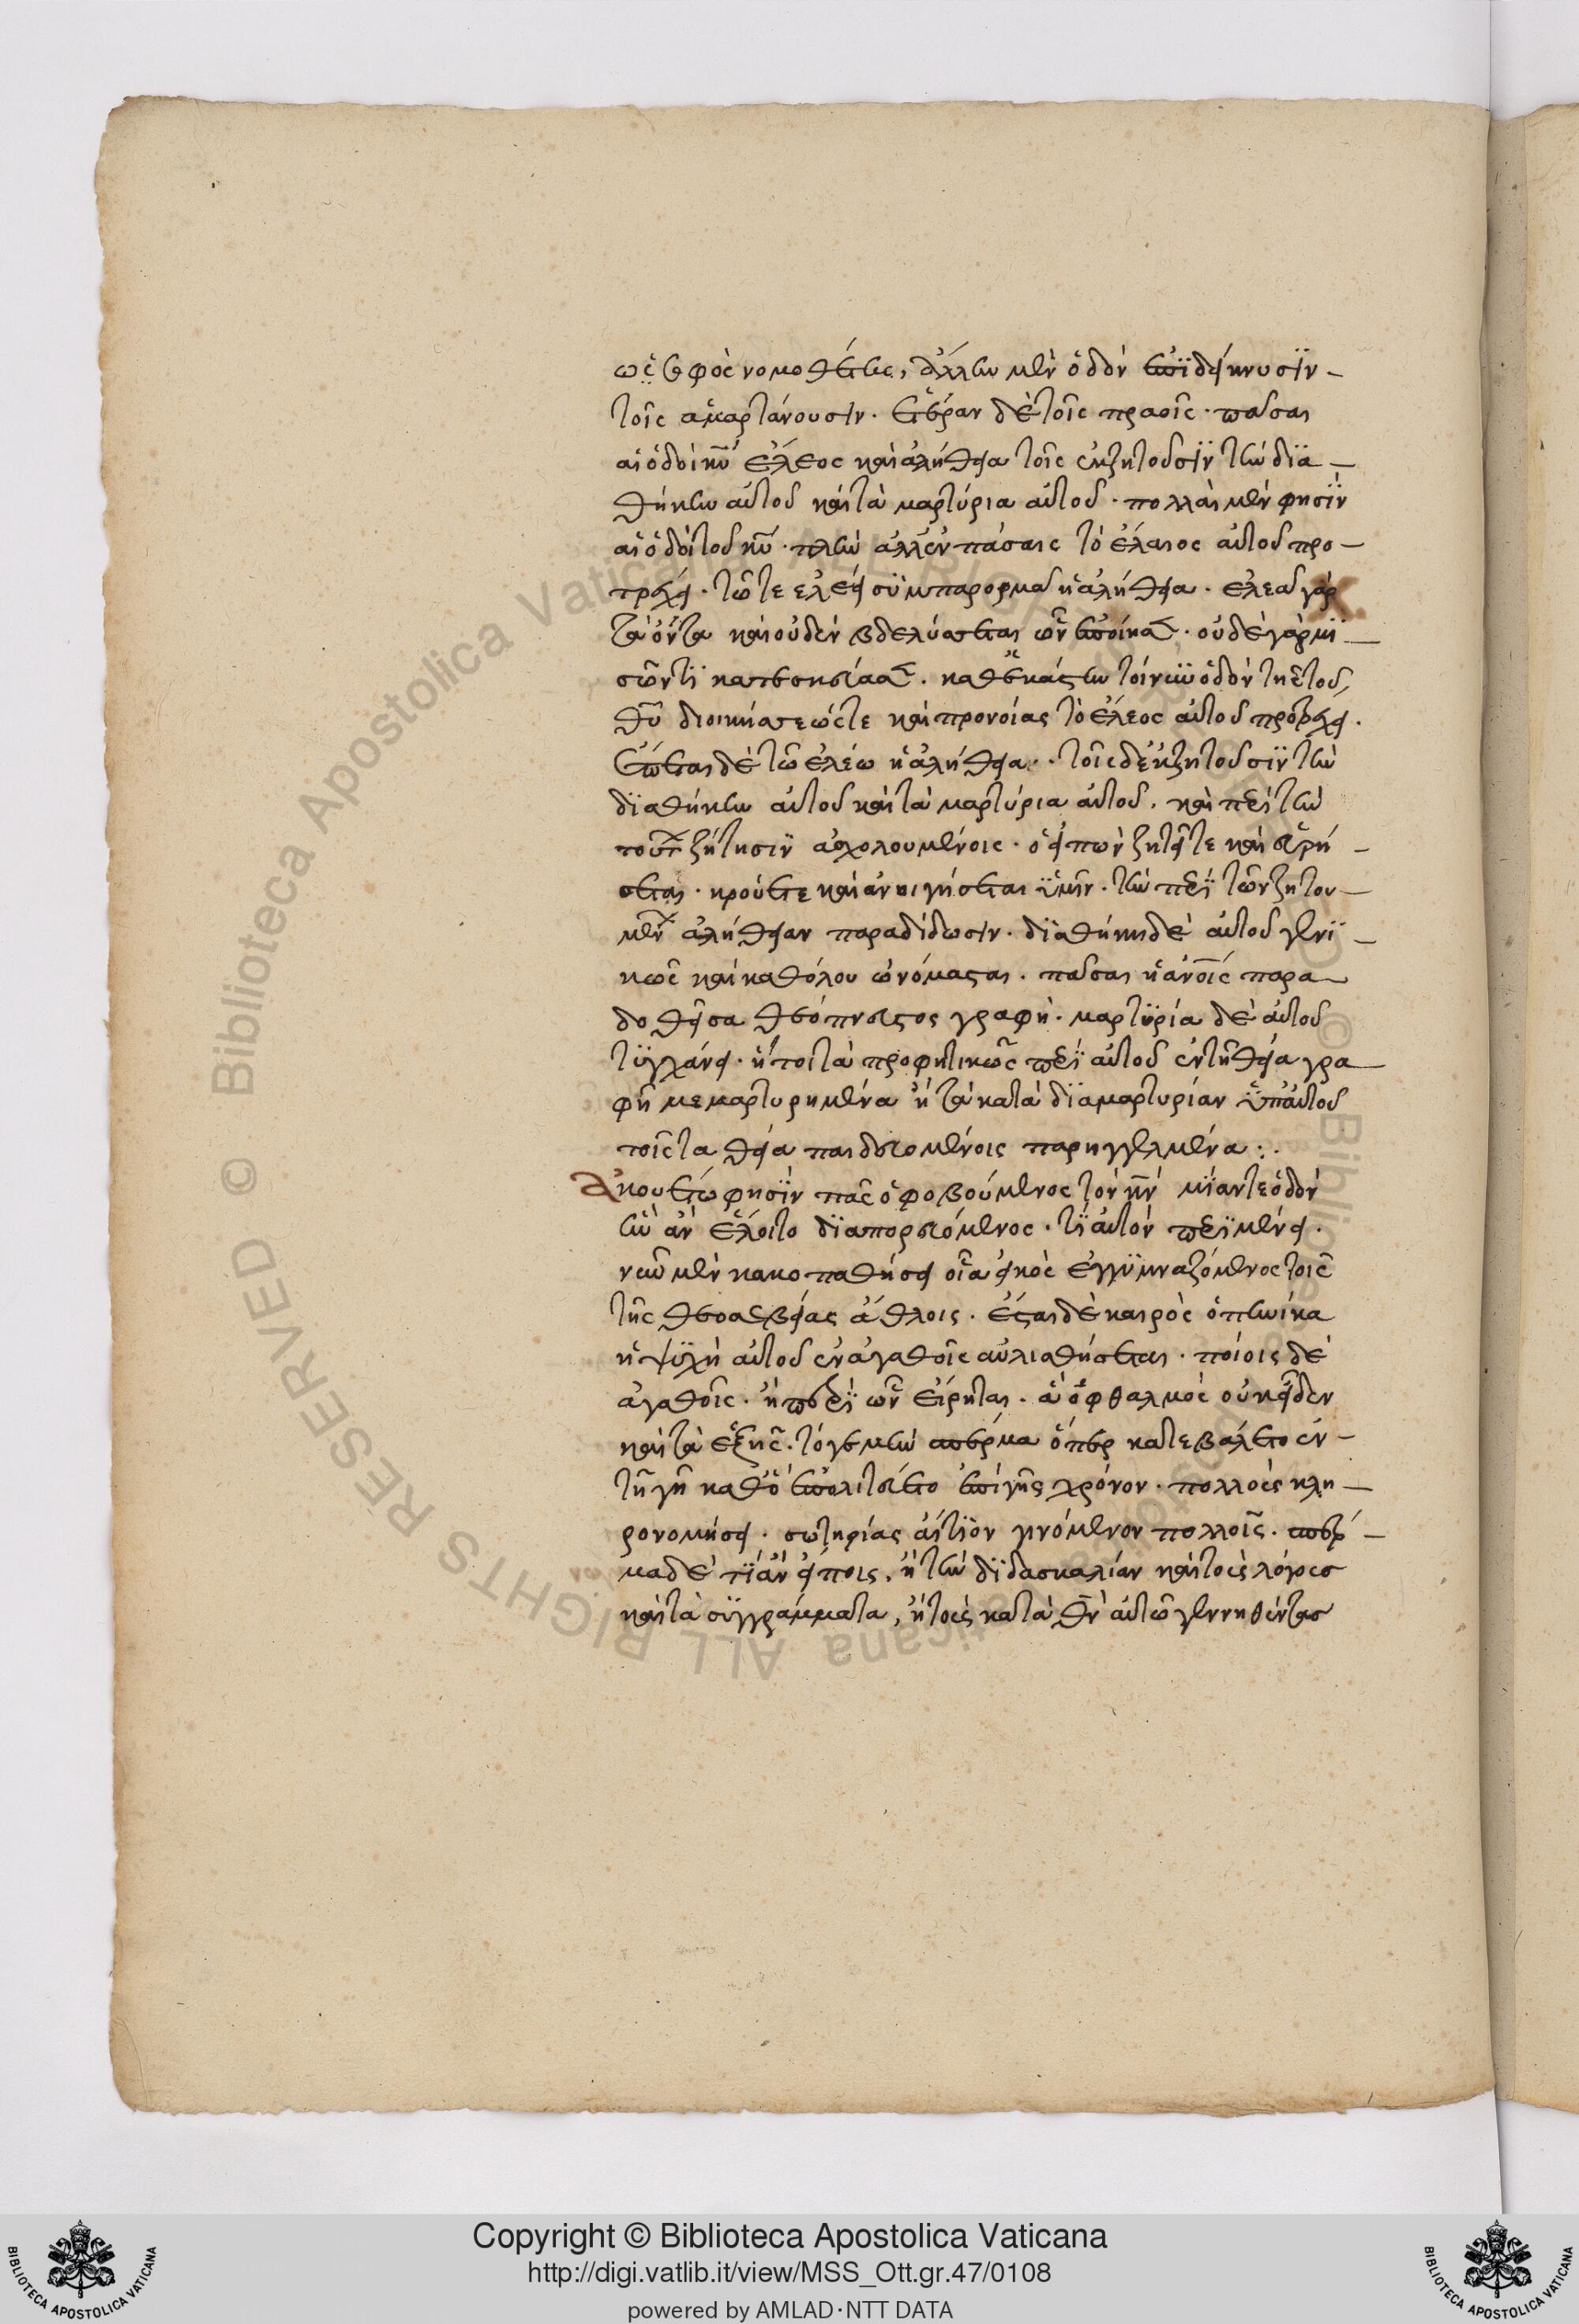 ὡς σοφὸς νομοθέτης, ἄλλην μὲν ὁδὸν ἐπιδείκνυσιν
τοῖς ἁμαρτάνουσιν. ἑτέραν δὲ τοῖς πραοῖς. πᾶσαι
αἱ ὁδοὶ κυ ἔλεος καὶ ἀλήθεια τοῖς ἐκζητοῦσιν τὴν δια
θήκην αὐτοῦ καὶ τὰ μαρτύρια αὐτοῦ. πολλαὶ μὲν φησὶν
αἱ ὁδοὶ τοῦ κυ. πλὴν ἀλλ' ἐν πάσαις τὸ ἔλαιος αὐτοῦ προ
τρέχει. τῶ τε ἐλέει συμπαρορμᾶ ἡ ἀλήθεια. ἐλεᾶ γὰρ
τὰ ὄντα καὶ οὐδὲν βδελύσσεται ὧν πεποίηκεν. οὐδὲ γὰρ μι
σῶν τι κατεσκεύασεν. καθ' ἑκάστην τοίνυν ὁδὸν τῆς τοῦ
θυ διοικήσεώς τε καὶ προνοίας τὸ ἔλεος αὐτοῦ προτρέχει.
ἕπεται δὲ τῶ ἐλέω ἡ ἀλήθεια. τοῖς δὲ ἐκζητοῦσιν τὴν
διαθήκην αὐτοῦ καὶ τὰ μαρτύρια αὐτοῦ. καὶ περὶ τὴν
τούτων ζήτησιν ἀσχολουμένοις. ὁ εἰπὼν ζητεῖτε καὶ εὑρή
σεται. κρούετε καὶ ἀνοιγήσεται ὑμῖν. τὴν περὶ τῶν ζητου
μένων ἀλήθειαν παραδίδωσιν. διαθήκη δὲ αὐτοῦ γενι
κῶς καὶ καθόλου ὠνόμασται. πᾶσαι ἡ ἀνοις παρα
δοθεῖσα θεόπνευστος γραφή. μαρτυρία δὲ αὐτοῦ
τυγχάνει. ἤτοι τὰ προφητικῶς περὶ αὐτοῦ ἐν τῆ θεία γρα
φῆ μεμαρτυρημένα ἢ τὰ κατὰ διαμαρτυρίαν ὑπ' αὐτοῦ
τοῖς τὰ θεῖα παιδευομένοις παρηγγελμένα:
Ἀκουέτω φησὶν πᾶς ὁ φοβούμενος τὸν κν μίαν τε ὁδὸν
ἣν ἂν ἕλοιτο διαπορευόμενος. τί αὐτὸν περιμένει.
νῦν μὲν κακοπαθήσει οἷα εἰκὸς ἐγγυμναζόμενος τοῖς
τῆς θεοσεβείας ἄθλοις. ἔσται δὲ καιρὸς ὁπηνίκα
ἡ ψυχὴ αὐτοῦ ἐν ἀγαθοῖς αὐλισθήσεται. ποίοις δὲ
ἀγαθοῖς. ἢ περὶ ὧν εἴρηται. ἃ ὀφθαλμὸς οὐκ εἶδεν
καὶ τὰ ἑξῆς. τό γε μὴν σπέρμα ὅπερ κατεβάλετο ἐν
τῆ γῆ καθ' ὃ ἐπολιτεύετο ἐπὶ γῆς χρόνον. πολλοὺς κλη
ρονομήσει. σωτηρίας αἴτιον γινόμενον πολλοῖς. σπέρ
μα δὲ τί ἂν εἴποις, ἢ τὴν διδασκαλίαν καὶ τοὺς λόγους
καὶ τὰ συγγράμματα, ἢ τοὺς κατὰ θν αὐτῶ γεννηθέντας
Copyright © Biblioteca Apostolica Vaticana
http://digi.vatlib.it/view/MSS_Ott.gr.47/0108
powered by AMLAD·NTT DATA